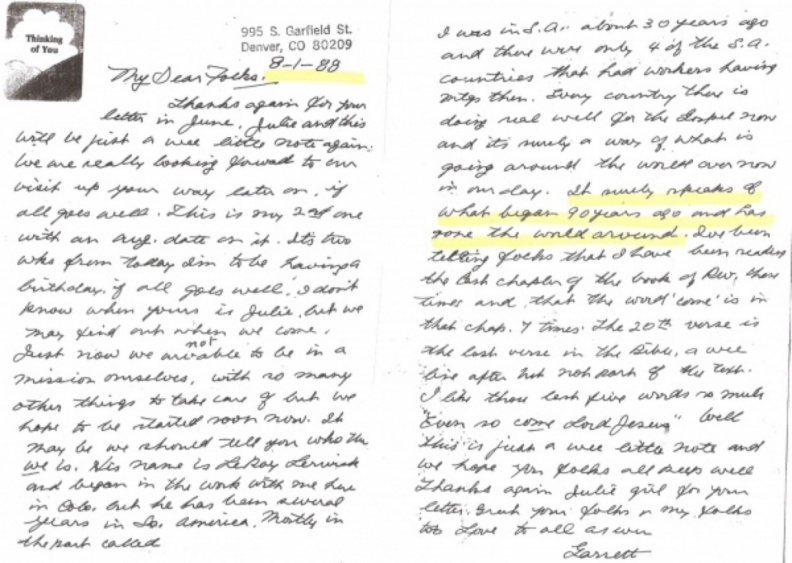 Thinking
of You
995 S. Garfield St.
Denver, CO 80209
8-1-88
My Dear Folks.
Thanks again for your
letter in June, Julie and this
will be just a wee little note again.
We are really looking foward to our
visit up your way later on, if
all goes well. This is my 2nd one
with an Aug. date on it. Its two
wks from today Im to be having a
birthday, if all goes well. I don't
know when yours is Julie, but we
may find out when we come.
not
Just now we are able to be in a
mission ourselves, with so many
other things to take care of but we
hope to be started soon now. It
may be we should tell you who the
we is. His name is LeRoy Lerwick
and began in the work with one here
in Colo. but he has been several
years in So. America. Mostly in
the part called
I was in S.A. about 30 years ago
and there were only 4 of the S.A.
countries that had workers having
mtgs then. Every country there is
doing real well for the Gospel now
and its surely a way of what is
going around the world over now
in our day. It surely speaks of
what began 90 years ago and has
gone the world around. I've been
telling folks that I have been reading
the last chapter of the book of Rev, those
times and that the word 'come' is in
that chap. 7 times. The 20th verse is
the last verse in the Bible, a wee
line after but not part of the text.
I like those last five words so much
"Even so come Lord Jesus" Well
this is just a wee little note and
we hope you folks all keep well
Thanks again Julie girl for your
letter. Greet your folks & my folks
too Love to all as ever
Garrett